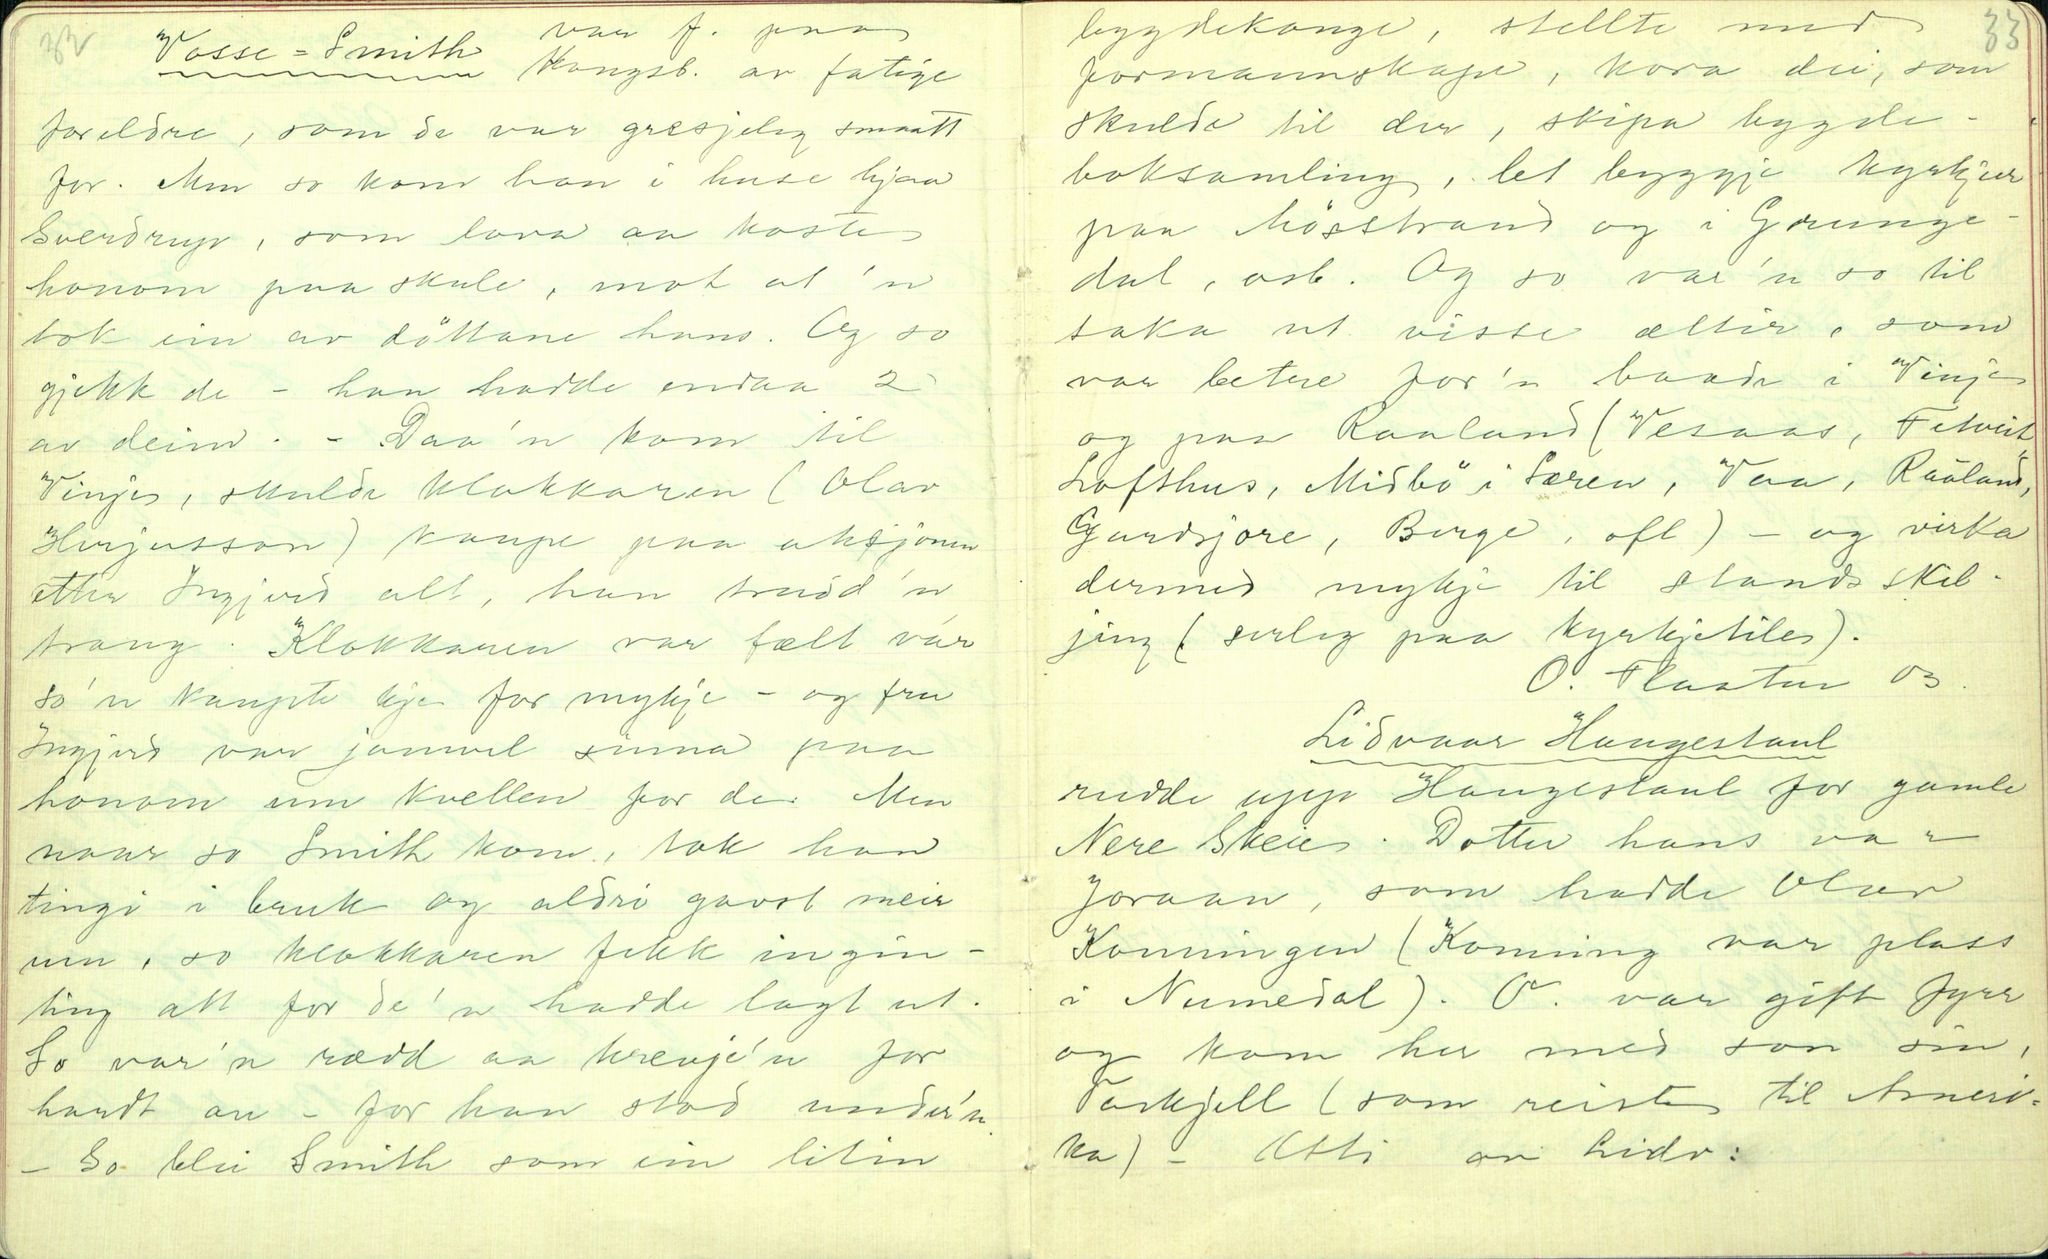 32
Vosse-Smith var f. paa
Kongsb. av fatige
foreldre, som de var gresjeleg smaatt
for. Men so kom han i huse hjaa
Sverdrup, som lova aa koste
honom paa skule, mot at 'n
tok ein av döttane hans. Og so
gjekk de - han hadde endaa 2
av deim. - Daa'n kom til
Vinje, skulde klokkaren (Olav
Herjusson) kaupe paa auksjonen
etter Ingjerd alt, han trudd'n
trong. Klokkaren var fælt var
so'n kaupte kje for mykje - og fru
Ingjerd var jamvel sinna paa
honom um kvellen for de. Men
naar so Smith kom, tok han
tingi i bruk og aldri gavst meir
um, so klokkaren fekk ingin-
ting att for de'n hadde lagt ut.
So var'n rædd aa krevje'n for
hardt au - for han stod under'n.
- So blei Smith som ein litin
33
bygdekonge, stellte med
formannskape, kora dei, som
skulde til der, skipa bygde-
boksamling, let byggje kyrkjur
paa Mösstrand og i Grunge-
dal, osb. Og so var'n so til
taka ut visse ættir, som
var betre for'n baade i Vinje
og paa Rauland (Vesaas, Felveit
Lofthus, Midbö i Særen, Vaa, Raaland,
Gardsjore, Berge, ofl) - og virka
dermed mykje til standsskil-
jing (serleg paa kyrkjetiles).
O. Flaatun 03.
Lidvaar Haugestaul
rudde upp Haugestaul for gamle
Nere Skeie. Dotter hans var
Joraan, som hadde Olav
Konningen (Konning var plass
i Numedal). O. var gift fyrr
og kom her med son sin,
Torkjell (som reiste til Ameri-
ka) - Ætti av Lidv: